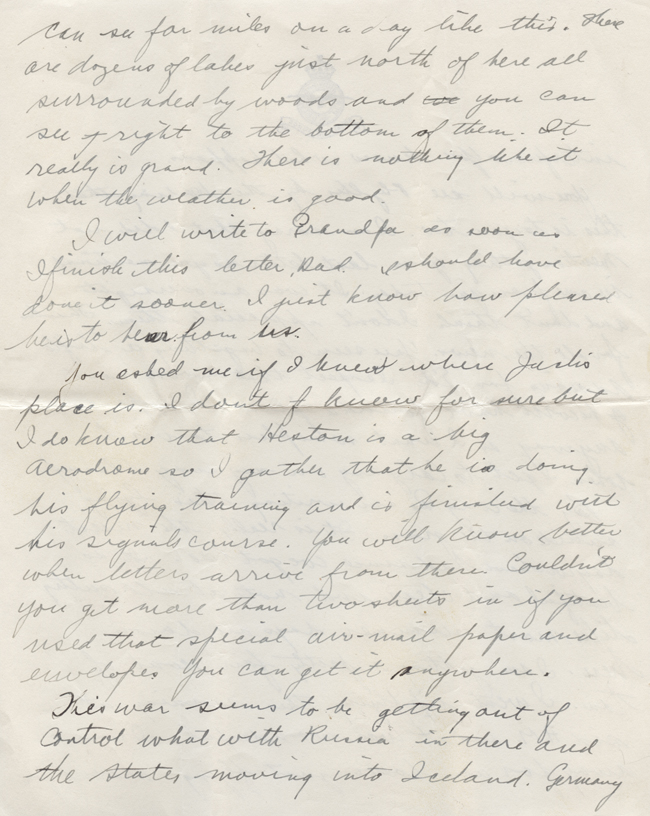 can see for miles on a day like this. There
are dozens of lakes just north of here all
surrounded by woods and we you can
see right to the bottom of them. It
really is grand. There is nothing like it
when the weather is good.
I will write to Grandpa as soon as
I finish this letter, Dad. I should have
done it sooner. I just know how pleased
he is to hear from us.
You asked me if I knew where Jack's
place is. I don't know for sure but
I do know that Heston is a big
Aerodrome so I gather that he is doing
his flying training and is finished with
his signals course. You will know better
when letters arrive from there. Couldn't
you get more than two sheets in if you
used that special air-mail paper and
envelopes you can get it anywhere.
This war seems to be getting out of
control what with Russia in there and
the States moving into Iceland. Germany